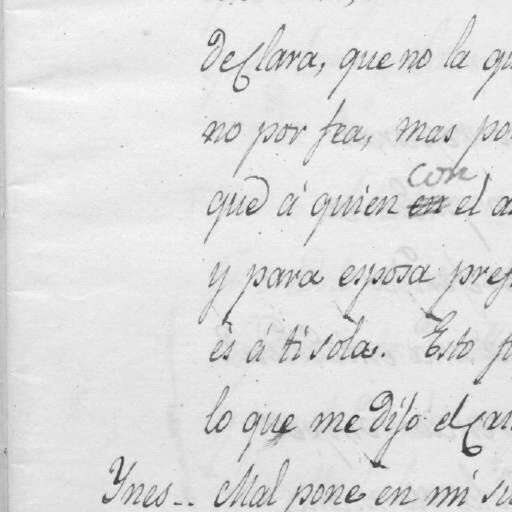 declara, que no la qu
no por fea, mas po
con
que à quien en el a
y para esposa pref
ès à ti sola. Esto f
lo que me dijo el
Ynes.. Mal pone en mi su